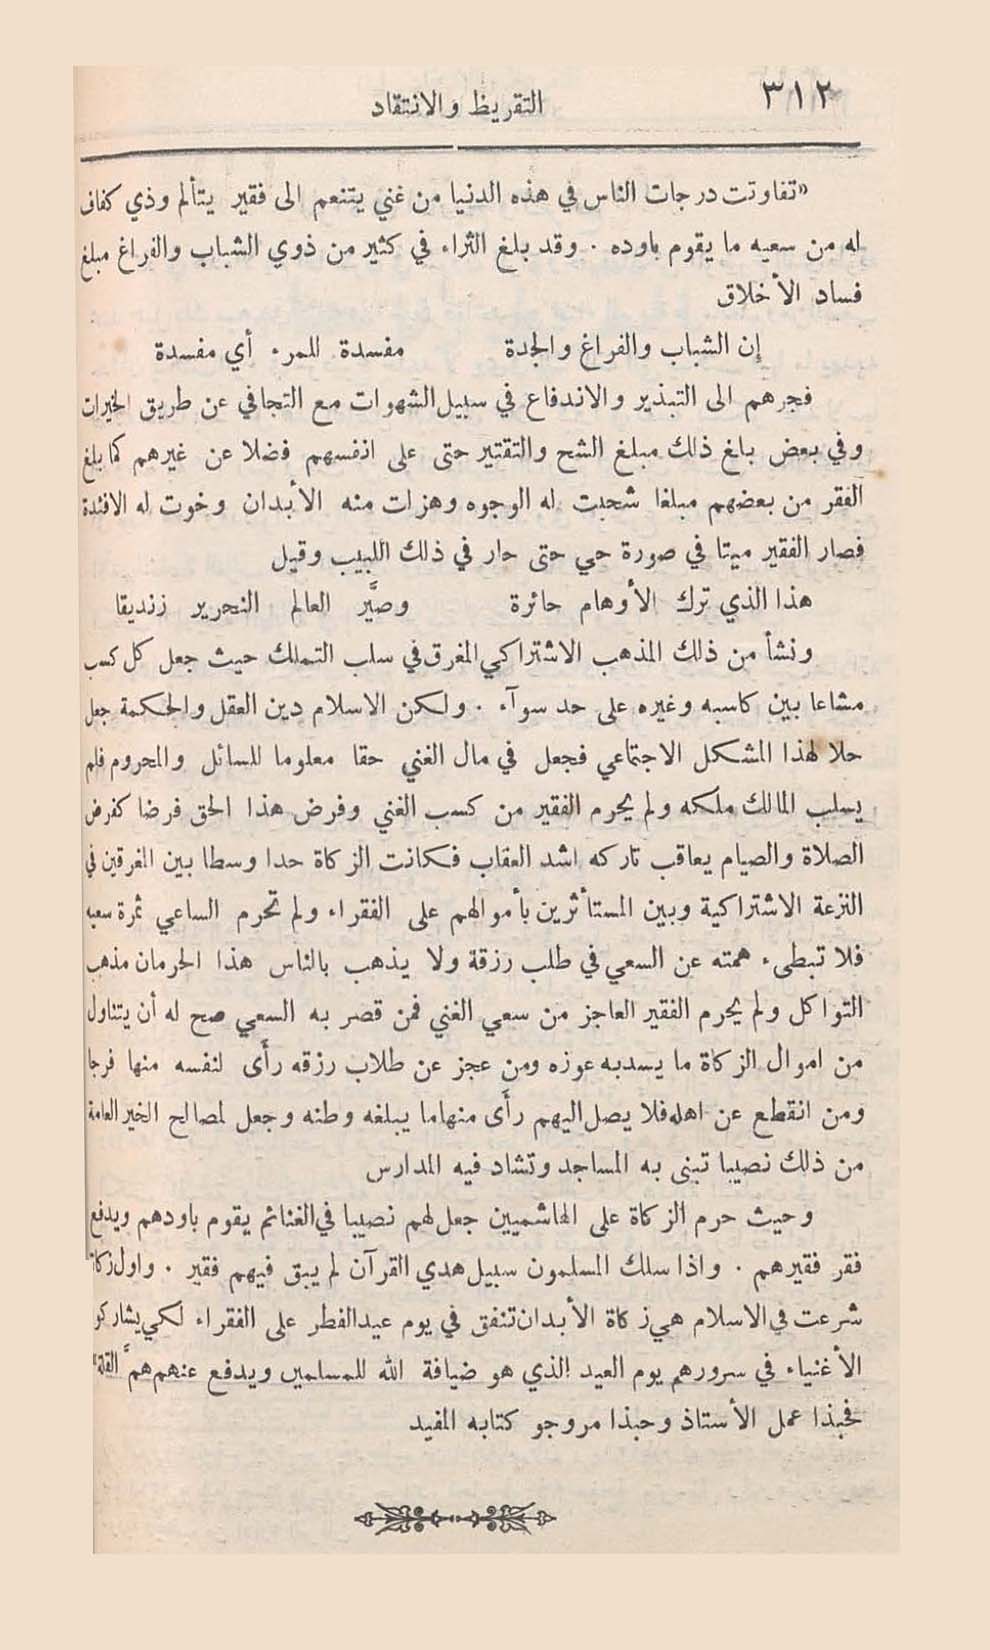 ٣١٢
التقريظ والانتقاد
«تفاوتت درجات الناس في هذه الدنيا من غني يتنعم الى فقير يتألم وذي كفاف
له من سعيه ما يقوم باوده . وقد بلغ الثراء في كثير من ذوي الشباب والفراغ مبلغ
فساد الأخلاق
إن الشباب والفراغ والجدة مفسدة للمرء أي مفسدة
فجرهم الى التبذير والاندفاع في سبيل الشهوات مع التجافي عن طريق الخيرات
وفي بعض بلغ ذلك مبلغ الشح والتقتير حتى على انفسهم فضلا عن غيرهم كما بلغ
الفقر من بعضهم مبلغا شحبت له الوجوه وهزلت منه الأبدان وخوت له الافئدة
فصار الفقير ميتا في صورة حي حتى حار في ذلك اللبيب وقيل
هذا الذي ترك الأوهام حائرة وصيَّر العالم النحرير زنديقا
ونشأ من ذلك المذهب الاشتراكي المغرق في سلب التملك حيث جعل كل كسب
مشاعا بين كاسبه وغيره على حد سوآء . ولكن الاسلام دين العقل والحكمة جعل
حلا لهذا المشكل الاجتماعي فجعل في مال الغني حقا معلوما للسائل والمحروم فلم
يسلب المالك ملكه ولم يحرم الفقير من كسب الغني وفرض هذا الحق فرضا كفرض
الصلاة والصيام يعاقب تاركه اشد العقاب فكانت الزكاة حدا وسطا بين المغرقين في
النزعة الاشتراكية وبين المستأثرين بأموالهم على الفقراء ولم تحرم الساعي ثمرة سعيه
فلا تبطىء همته عن السعي في طلب رزقة ولا يذهب بالناس هذا الحرمان مذهب
التواكل ولم يحرم الفقير العاجز من سعي الغني فمن قصر به السعي صح له أن يتناول
من اموال الزكاة ما يسدبه عوزه ومن عجز عن طلاب رزقه رأَى لنفسه منها فرجا
ومن انقطع عن اهله فلا يصل اليهم رأَى منهاما يبلغه وطنه وجعل لمصالح الخير العامة
من ذلك نصيبا تبنى به المساجد وتشاد فيه المدارس
وحيث حرم الزكاة على الهاشميين جعل لهم نصيبا في الغنائم يقوم باودهم ويدفع
فقر فقيرهم . واذا سلك المسلمون سبيل هدي القرآن لم يبق فيهم فقير . واول زكاة
شرعت في الاسلام هي زكاة الأبدان تنفق في يوم عيد الفطر على الفقراء لكي يشاركو
الأغنياء في سرورهم يوم العيد الذي هو ضيافة الله للمسلمين ويدفع عنهم همَّ القلة»
فحبذا عمل الأستاذ وحبذا مروجو كتابه المفيد